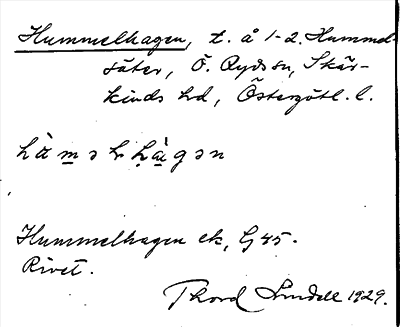 Hummelhagen, t. å 1-2. Hummel-
säter, Ö. Ryds sn, Skär-
kinds hd, Östergötl. l.
Hummelhagen ek, G 45.
Rivet.
Thord Lindell 1929.